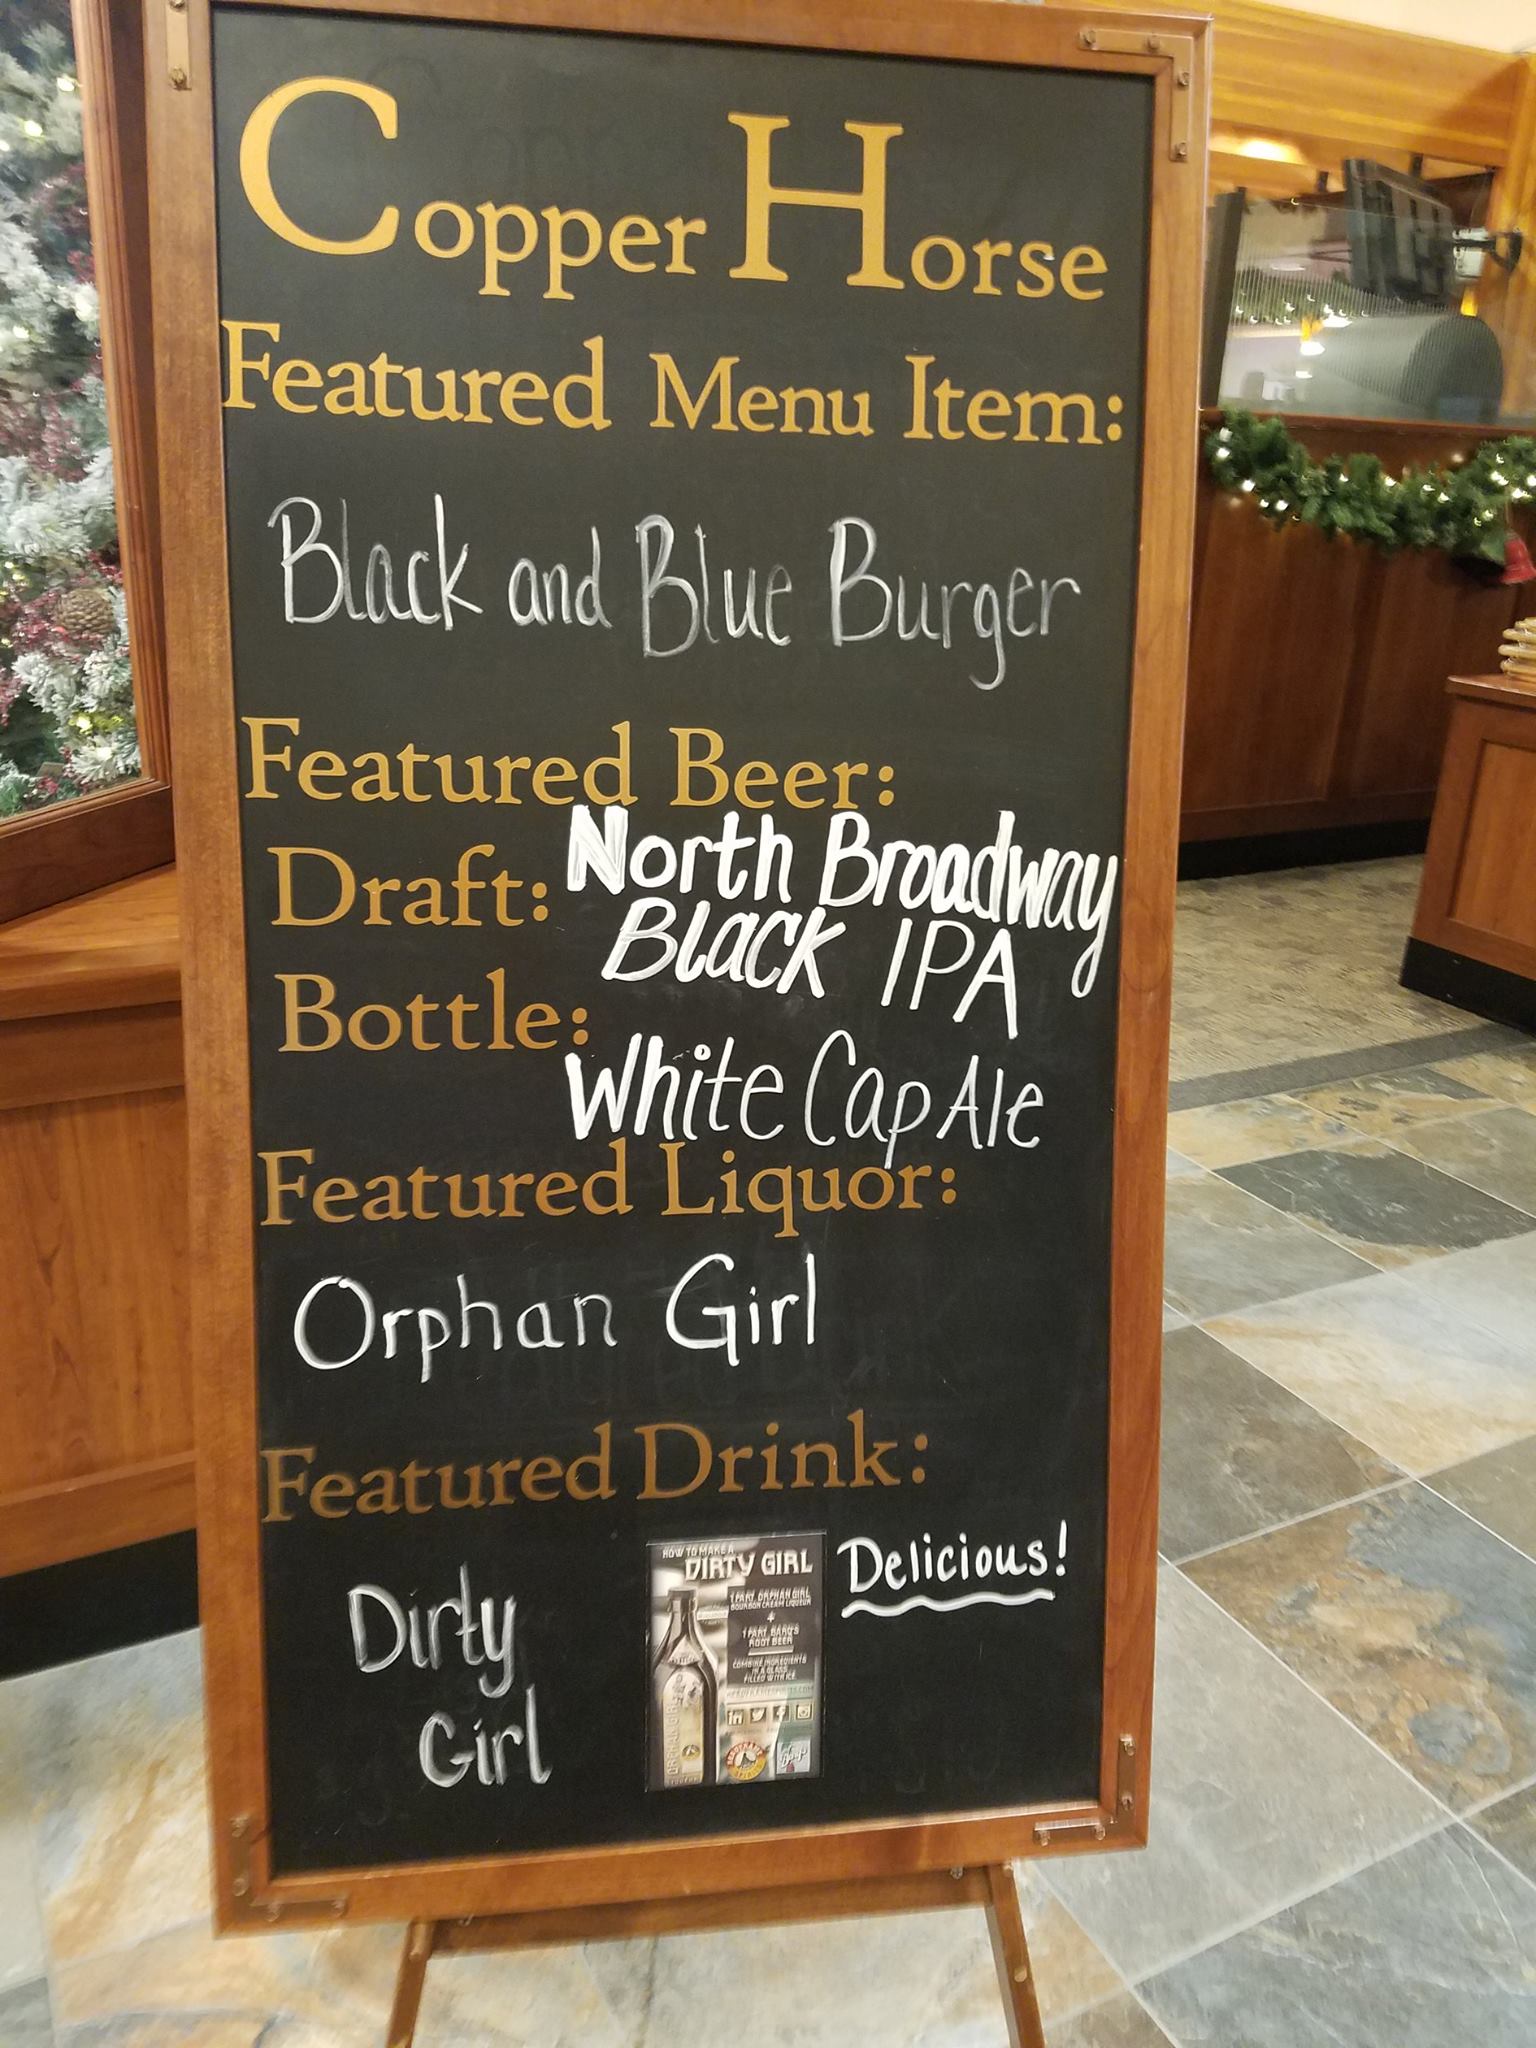 Copper Horse
Featured Menu Item:
Black and Blue Burger
Featured Beer:
Draft: North Broadway
Black IPA
Bottle:
White Cap Ale
Featured Liquor:
Orphan Girl
Featured Drink:
Dirty
Girl
HOW TO MAKE A
DIRTY GIRL
1 PART ORPHAN GIRL
BOURBON CREAM LIQUEUR
+
1 PART BARQ'S
ROOT BEER
COMBINE INGREDIENTS
IN A GLASS
FILLED WITH ICE
ORPHAN GIRL
Delicious!